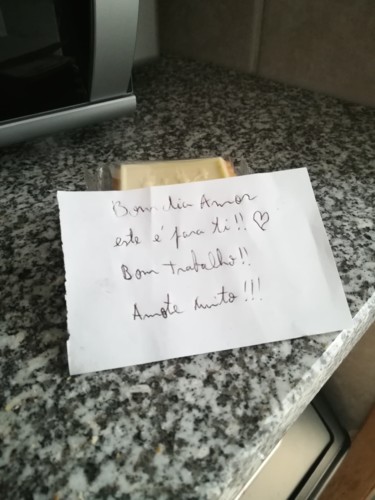 Bom dia Amor
este é para ti!! ♡
Bom trabalho!!
Amote muito!!!